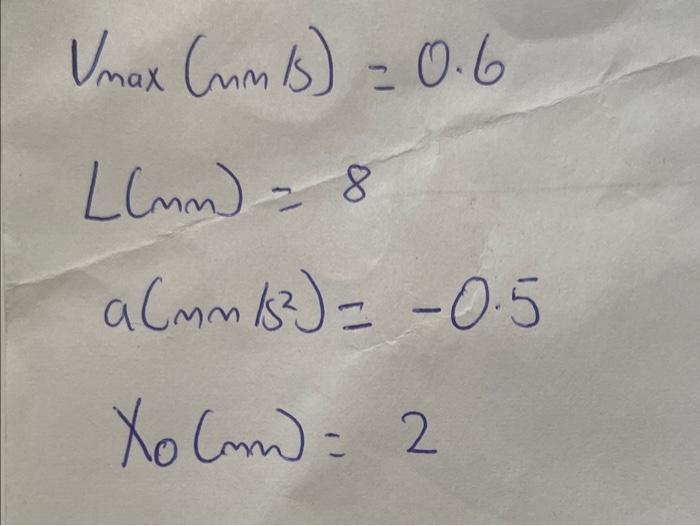 Vmax (mm/s) = 0.6
L(mm) = 8
a(mm/s²) = -0.5
X₀ (mm) = 2